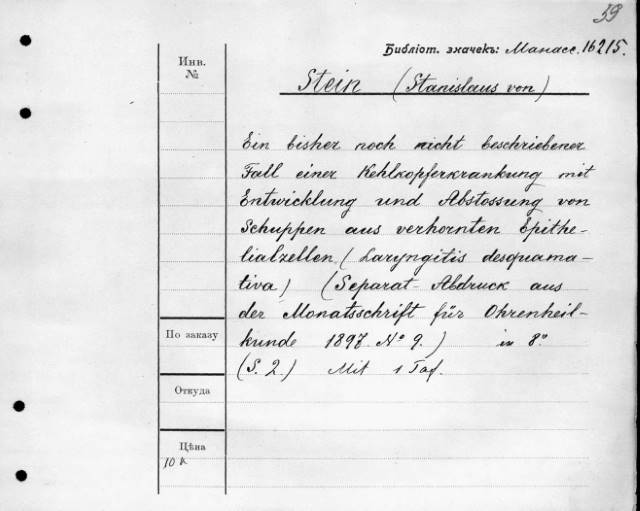 59
Библіот. значекъ: Манасс. 16215.
Инв.
№
Stein (Stanislaus von)
Ein bisher noch nicht beschriebener
Fall einer Kehlkopferkrankung mit
Entwicklung und Abstossung von
Schuppen aus verhornten Epithe-
lialzellen (Laryngitis desquama-
tiva) (Separat-Abdruck aus
der Monatsschrift für Ohrenheil-
kunde 1897 No 9.) in 8°
(S. 2.) Mit 1 Taf.
По заказу
Откуда
Цѣна
10 к